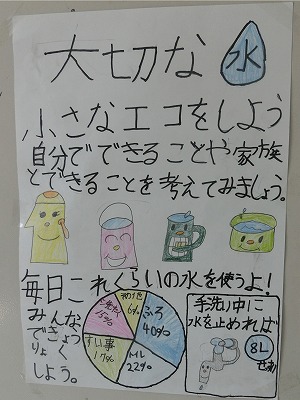 大切な水
小さなエコをしよう
自分でできることや家族
とできることを考えてみましょう。
毎日これくらいの水を使うよ!
みんな
できょう
りょく
しよう。
その他
6%
ふろ
40%
トイレ
22%
すい事
17%
せんたく
15%
手洗い中に
水を止めれば
8L